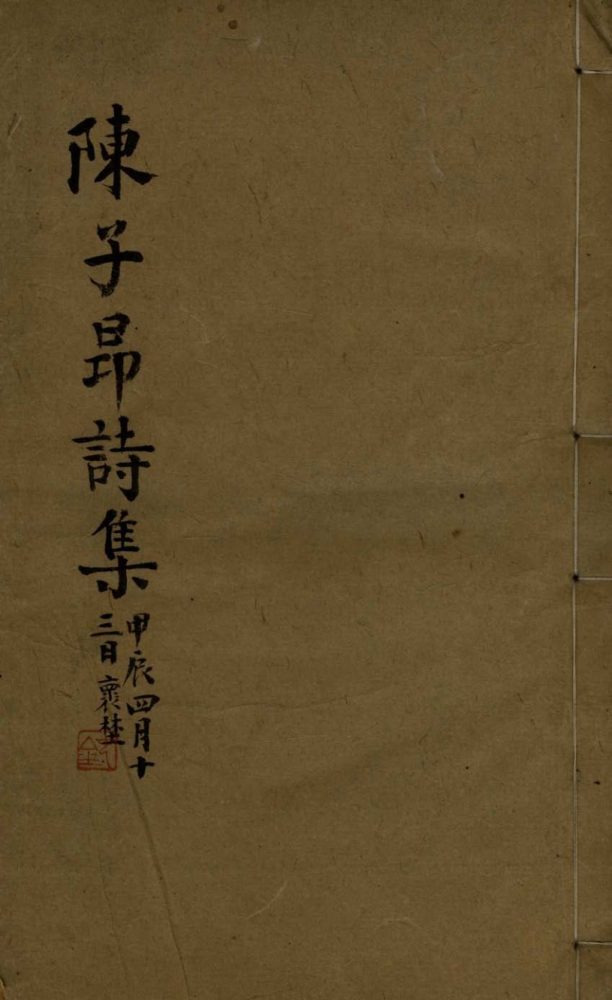 陳子昂詩集
甲辰四月十
三日裹埜